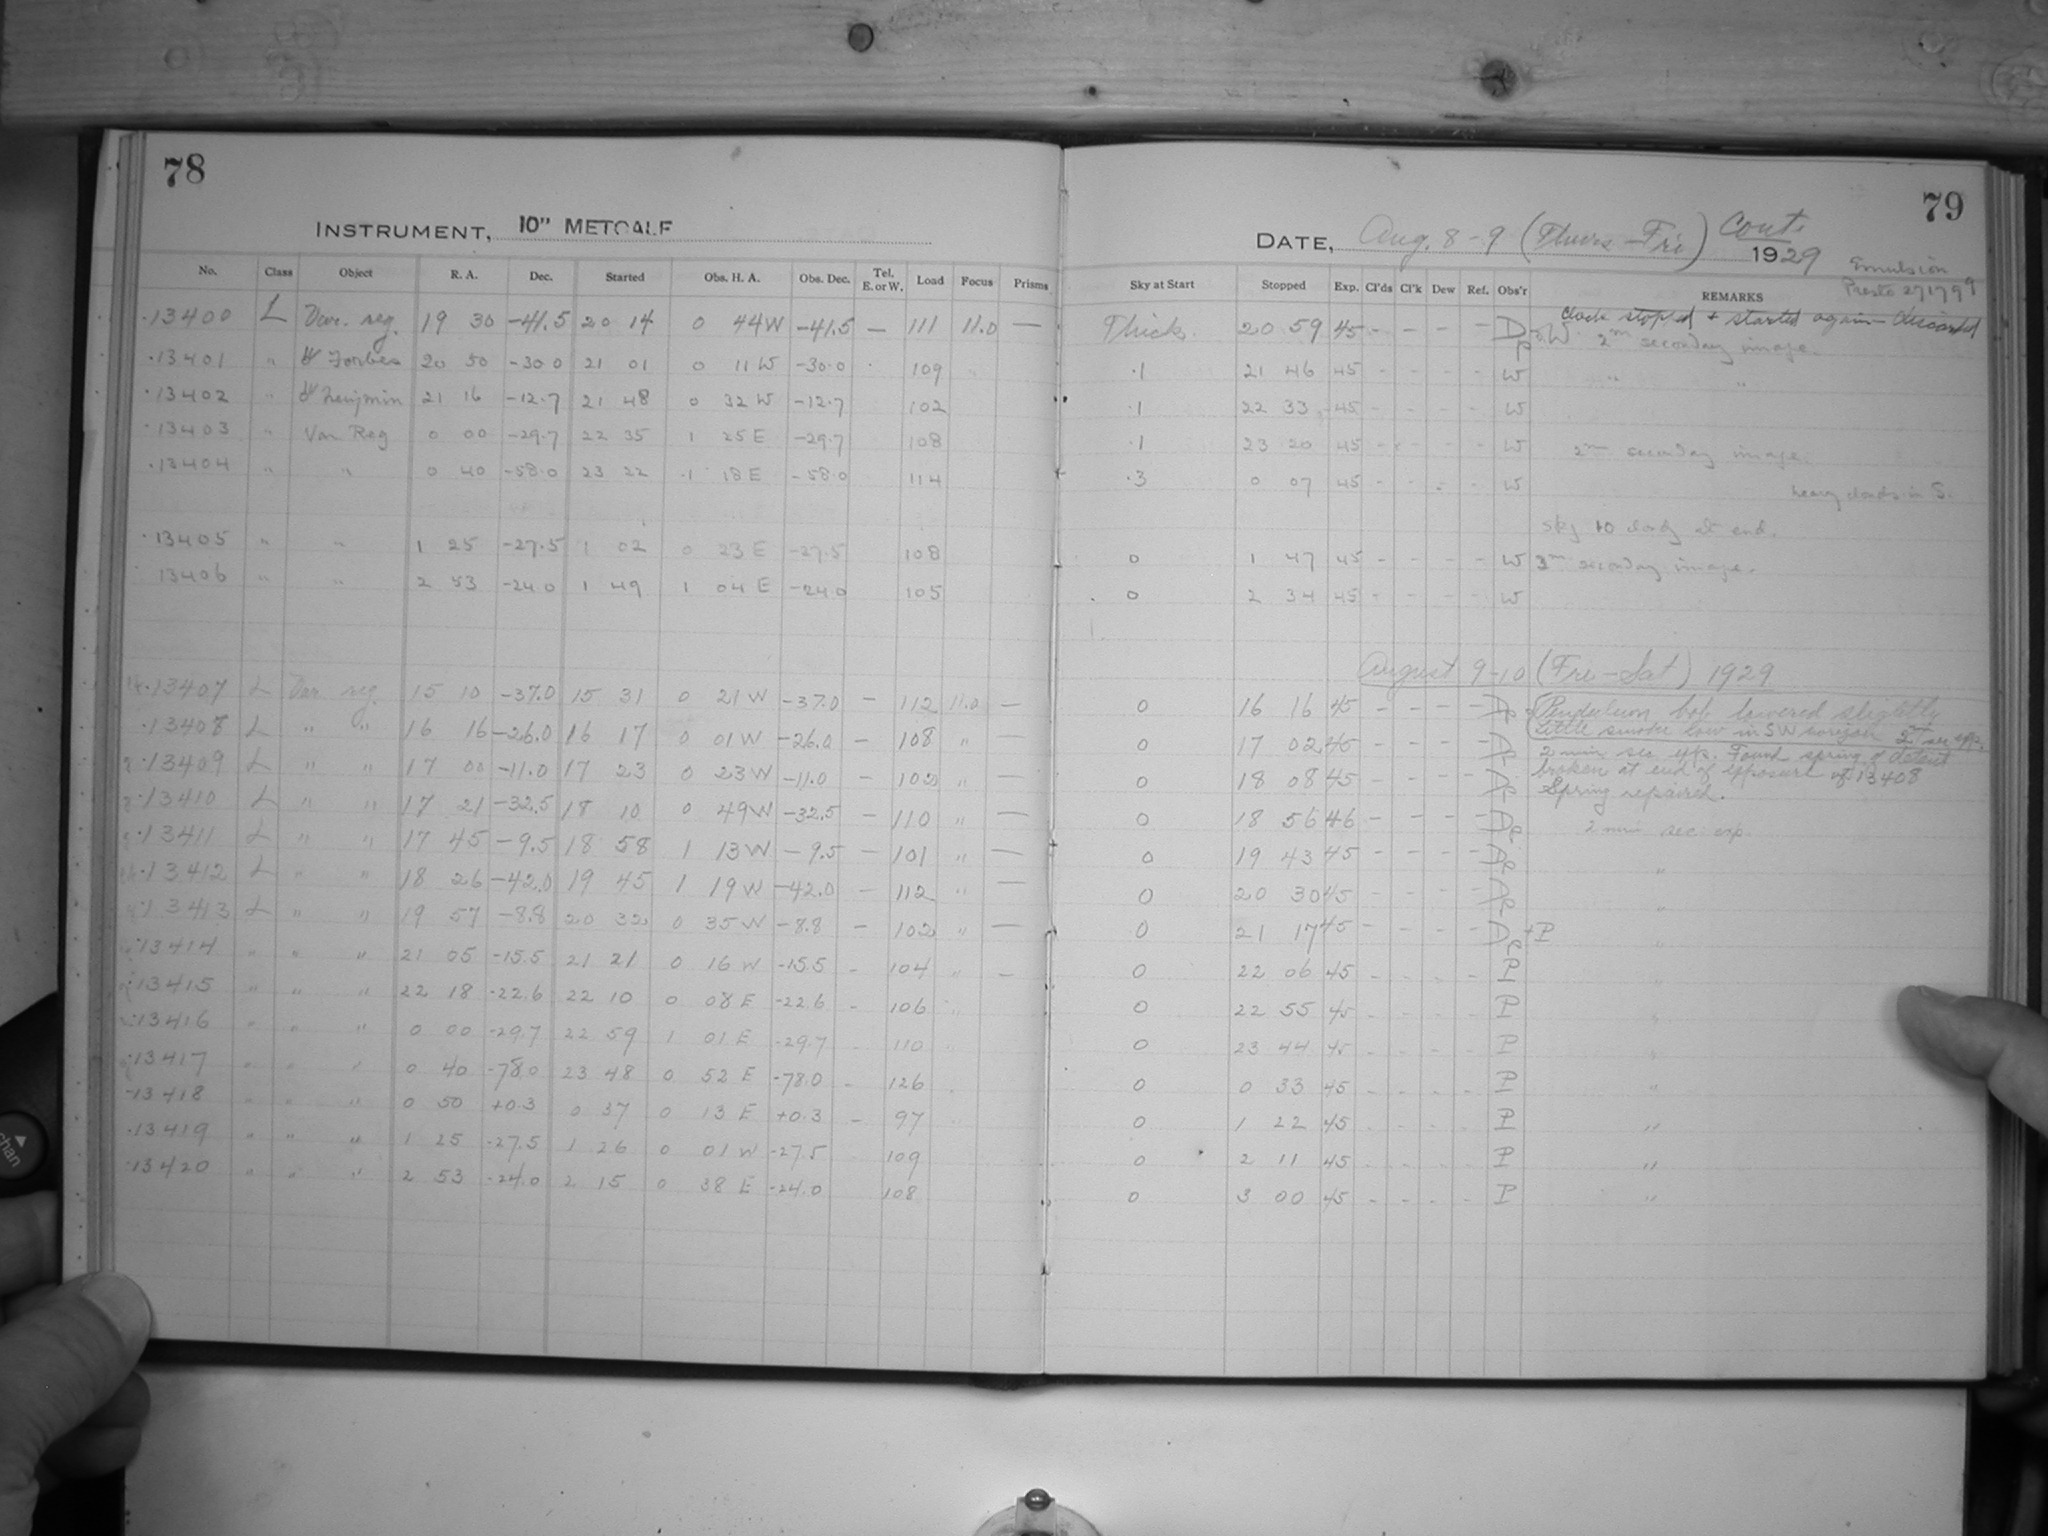 78
INSTRUMENT, 10" METCALF
No. Class Object R. A. Dec. Started Obs. H. A. Obs. Dec. Tel. E. or W. Load Focus Prisms
13400 L Var. reg. 19 30 -41.5 20 14 0 44 W -41.5 — 111 11.0 —
13401 " Forbes 20 50 -30.0 21 01 0 11 W -30.0 109 "
13402 " 21 16 -12.7 21 48 0 32 W -12.7 102
13403 " Var Reg 0 00 -29.7 22 35 1 25 E -29.7 108
13404 " " 0 40 -58.0 23 22 1 18 E -58.0 114
13405 " " 1 25 -27.5 1 02 0 23 E -27.5 108
13406 " " 2 53 -24.0 1 49 1 04 E -24.0 105
13407 L Var. reg. 15 10 -37.0 15 31 0 21 W -37.0 — 112 11.0 —
13408 L " " 16 16 -26.0 16 17 0 01 W -26.0 — 108 " —
13409 L " " 17 00 -11.0 17 23 0 23 W -11.0 — 102 " —
13410 L " " 17 21 -32.5 18 10 0 49 W -32.5 — 110 " —
13411 L " " 17 45 -9.5 18 58 1 13 W -9.5 — 101 " —
13412 L " " 18 26 -42.0 19 45 1 19 W -42.0 — 112 " —
13413 L " " 19 57 -8.8 20 32 0 35 W -8.8 — 102 " —
13414 " " " 21 05 -15.5 21 21 0 16 W -15.5 - 104 " -
13415 " " " 22 18 -22.6 22 10 0 08 E -22.6 - 106 "
13416 " " " 0 00 -29.7 22 59 1 01 E -29.7 - 110 "
13417 " " " 0 40 -78.0 23 48 0 52 E -78.0 - 126
13418 " " " 0 50 +0.3 0 37 0 13 E +0.3 - 97
13419 " " " 1 25 -27.5 1 26 0 01 W -27.5 109
13420 " " " 2 53 -24.0 2 15 0 38 E -24.0 108
79
DATE, Aug. 8-9 (Thurs-Fri) Cont. 1929
Emulsion
Presto 271799
Sky at Start Stopped Exp. Cl'ds Cl'k Dew Ref. Obs'r REMARKS
Clock stopped + started again - discarded
Thick. 20 59 45 - - - - 2m secondary image.
.1 21 46 45 - - - - W " "
.1 22 33 45 - - - - W
.1 23 20 45 - - - - W 2m secondary image.
.3 0 07 45 - - - - W heavy clouds in S.
sky 10 cloudy at end.
0 1 47 45 - - - - W 3m secondary image.
0 2 34 45 - - - - W
August 9-10 (Fri-Sat) 1929
0 16 16 45 - - - - Pendulum bob lowered slightly
Little smoke low in SW horizon
0 17 02 45 - - - - 2 min sec exp. Found spring of detent
0 18 08 45 - - - - broken at end of exposure of 13408
Spring repaired.
0 18 56 46 - - - - 2 min sec. exp.
0 19 43 45 - - - - "
0 20 30 45 - - - - "
0 21 17 45 - - - - + P "
0 22 06 45 - - - - P "
0 22 55 45 - - - - P "
0 23 44 45 - - - - P "
0 0 33 45 - - - - P "
0 1 22 45 - - - - P "
0 2 11 45 - - - - P "
0 3 00 45 - - - - P "